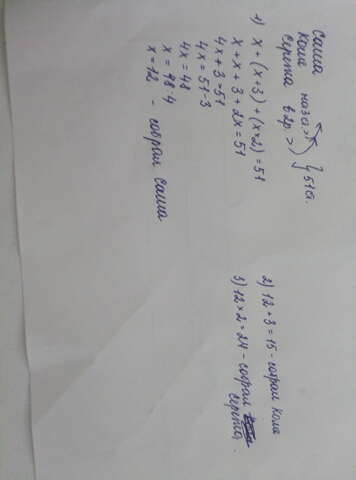 Саша
Коля на 3 а. >
Серёжа в 2 р. > } 51 а.
1) x + (x+3) + (x×2) = 51
x + x + 3 + 2x = 51
4x + 3 = 51
4x = 51-3
4x = 48
x = 48:4
x = 12 - собрал Саша
2) 12 + 3 = 15 - собрал Коля
3) 12 × 2 = 24 - собрал
Серёжа.